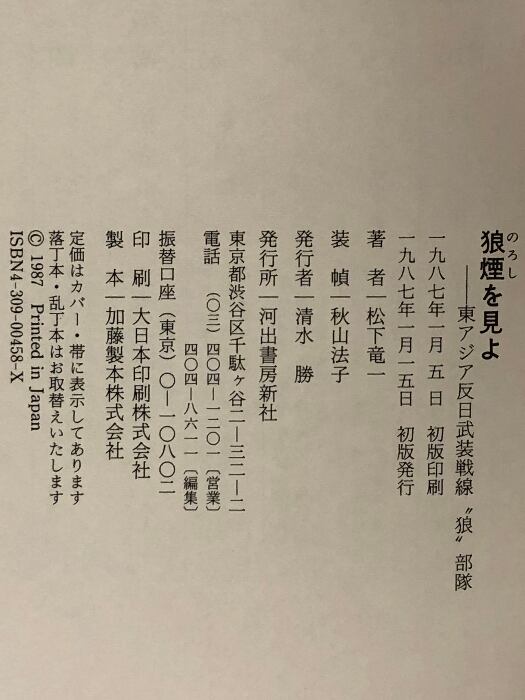 のろし
狼煙を見よ
――東アジア反日武装戦線〝狼〟部隊
一九八七年一月 五 日 初版印刷
一九八七年一月一五日 初版発行
著 者―松下竜一
装 幀―秋山法子
発行者―清水 勝
発行所―河出書房新社
東京都渋谷区千駄ヶ谷二―三二―二
電話 (〇三)四〇四―一二〇一〔営業〕
四〇四―八六一一〔編集〕
振替口座(東京)〇―一〇八〇二
印 刷―大日本印刷株式会社
製 本―加藤製本株式会社
定価はカバー・帯に表示してあります
落丁本・乱丁本はお取替えいたします
© 1987 Printed in Japan
ISBN4-309-00458-X